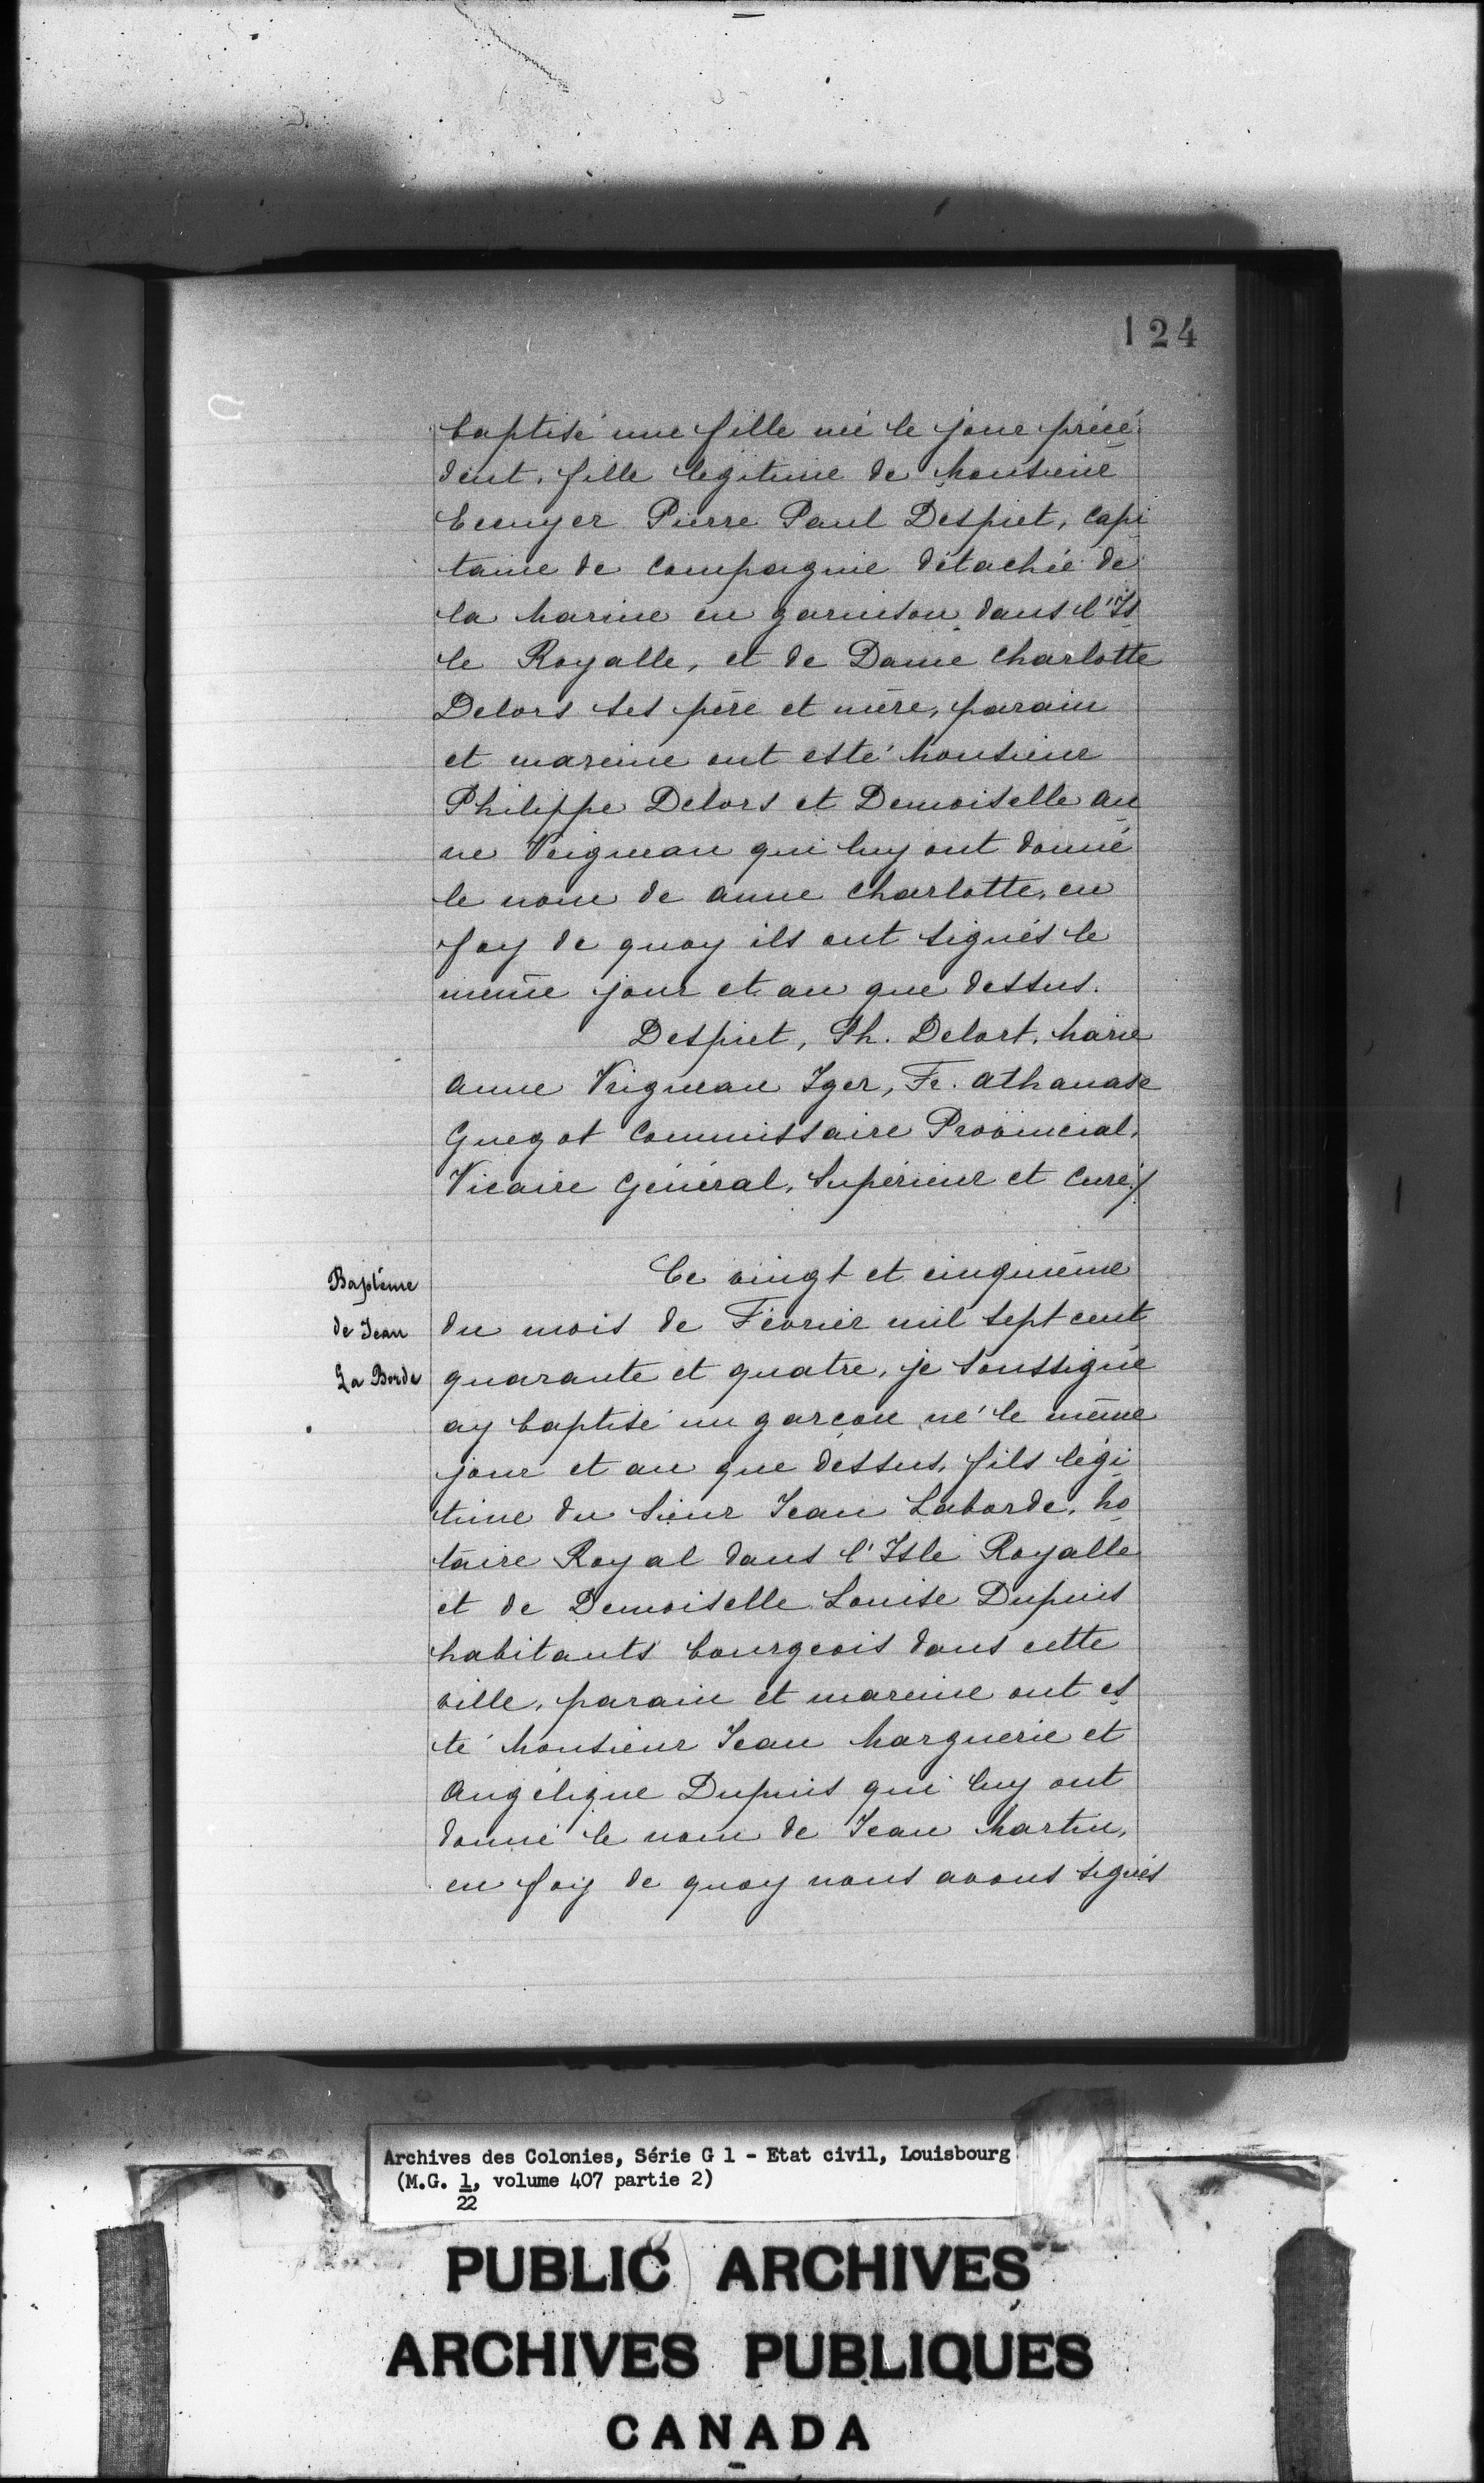 124
baptisé une fille née le jour précé
dent, fille légitime de Monsieur
Ecuyer Pierre Paul Despiet, Capi
taine de Compagnie détachée de
la Marine en garnison dans l'Is
le Royalle, et de Dame Charlotte
Delors ses père et mère, parain
et mareine ont esté Monsieur
Philippe Delors et Demoiselle An
ne Veigneau qui luy ont donné
le nom de Anne Charlotte, en
foy de quoy ils ont signés le
même jour et an que dessus.
Despiet, Ph. Delort, Marie
Anne Vrigneau Iger, Fr. Athanase
Guegot Commissaire Provincial,
Vicaire Général, Supérieur et Curé./
Baptême
de Jean
La Borde
Ce vingt et cinquième
du mois de Février mil sept cent
quarante et quatre, je soussigné
ay baptisé un garçon né le même
jour et an que dessus, fils légi
time du Sieur Jean Laborde, No
taire Royal dans l'Isle Royalle
et de Demoiselle Louise Dupuis
habitants bourgeois dans cette
ville, parain et mareine ont es
té Monsieur Jean Marguerie et
Angélique Dupuis qui luy ont
donné le nom de Jean Martin,
en foy de quoy nous avons signés
Archives des Colonies, Série G 1 - Etat civil, Louisbourg
(M.G. 1, volume 407 partie 2)
22
PUBLIC ARCHIVES
ARCHIVES PUBLIQUES
CANADA